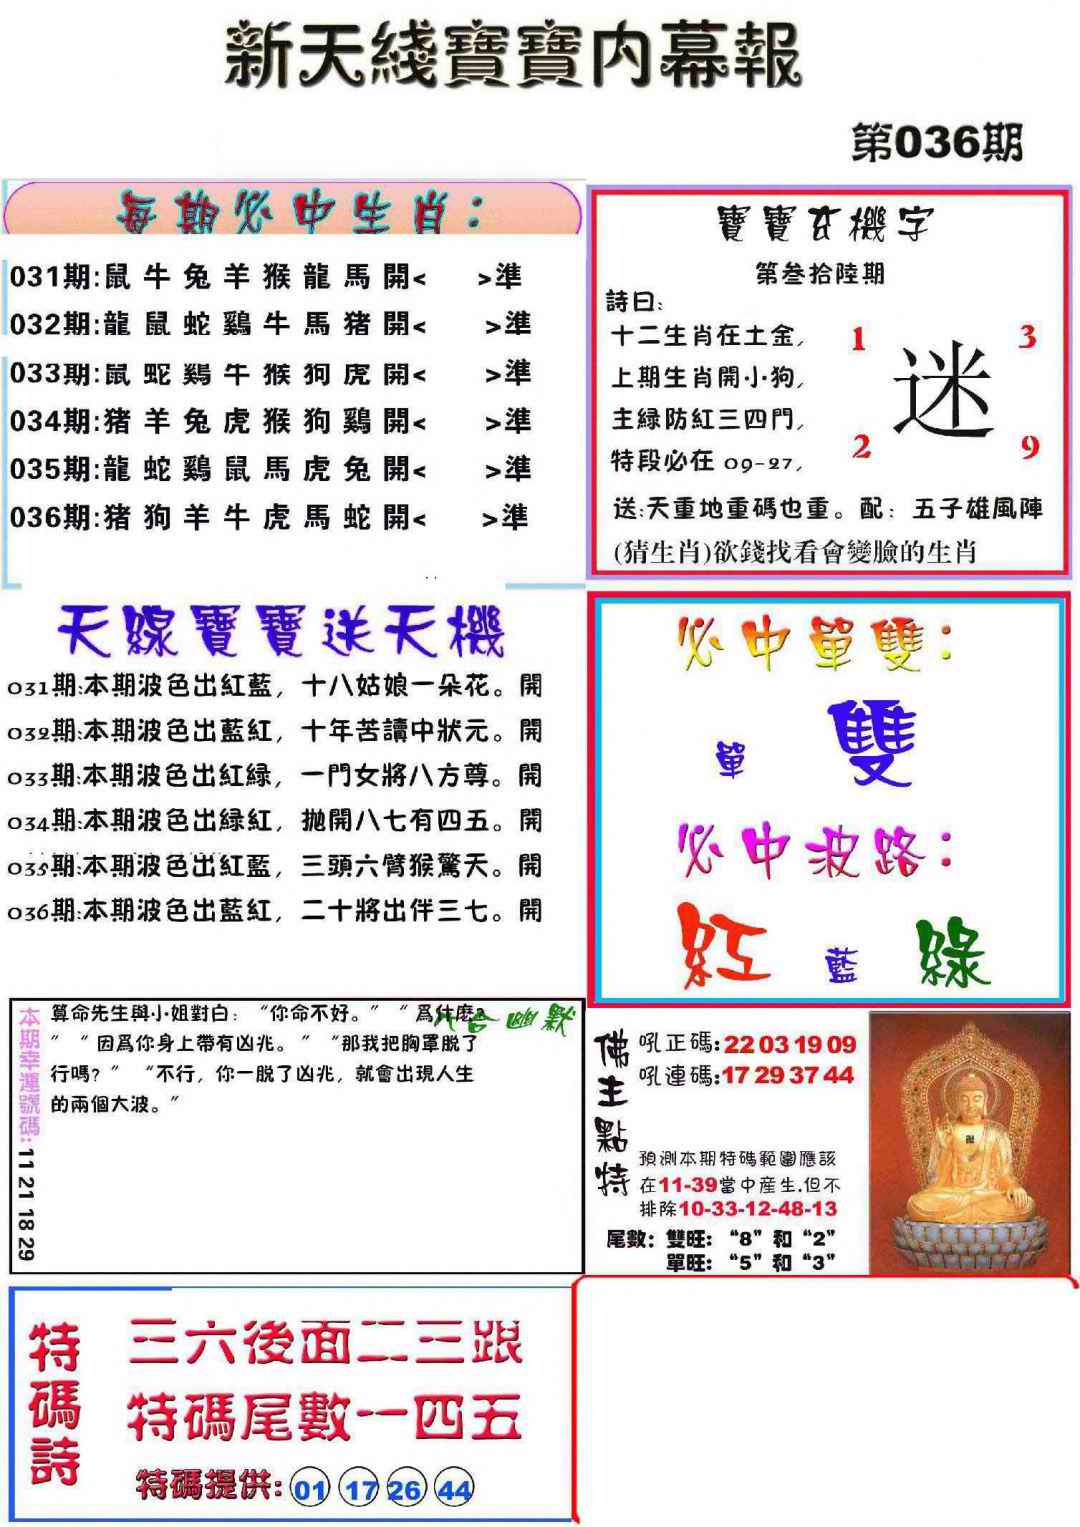 新天綫寶寶内幕報
第036期
每期必中生肖：
031期:鼠牛兔羊猴龍馬開<　>準
032期:龍鼠蛇鷄牛馬猪開<　>準
033期:鼠蛇鷄牛猴狗虎開<　>準
034期:猪羊兔虎猴狗鷄開<　>準
035期:龍蛇鷄鼠馬虎兔開<　>準
036期:猪狗羊牛虎馬蛇開<　>準
寶寶玄機字
第叁拾陸期
詩曰:
十二生肖在土金,
上期生肖開小狗,
主緑防紅三四門,
特段必在 09-27,
1 3
迷
2 9
送:天重地重碼也重。配：五子雄風陣
(猜生肖)欲錢找看會變臉的生肖
天線寶寶送天機
031期:本期波色出紅藍，十八姑娘一朵花。開
032期:本期波色出藍紅，十年苦讀中狀元。開
033期:本期波色出紅緑，一門女將八方尊。開
034期:本期波色出緑紅，抛開八七有四五。開
035期:本期波色出紅藍，三頭六臂猴驚天。開
036期:本期波色出藍紅，二十將出伴三七。開
必中單雙：
單 雙
必中波路：
紅 藍 綠
本期幸運號碼:11 21 18 29
六合幽默
算命先生與小姐對白：“你命不好。”“爲什麽?
”“因爲你身上帶有凶兆。”“那我把胸罩脱了
行嗎？”“不行，你一脱了凶兆，就會出現人生
的兩個大波。”
佛主點特
吼正碼:22 03 19 09
吼連碼:17 29 37 44
預測本期特碼範圍應該
在11-39當中産生.但不
排除10-33-12-48-13
尾數：雙旺：“8”和“2”
單旺：“5”和“3”
特碼詩
三六後面二三跟
特碼尾數一四五
特碼提供: 01 17 26 44